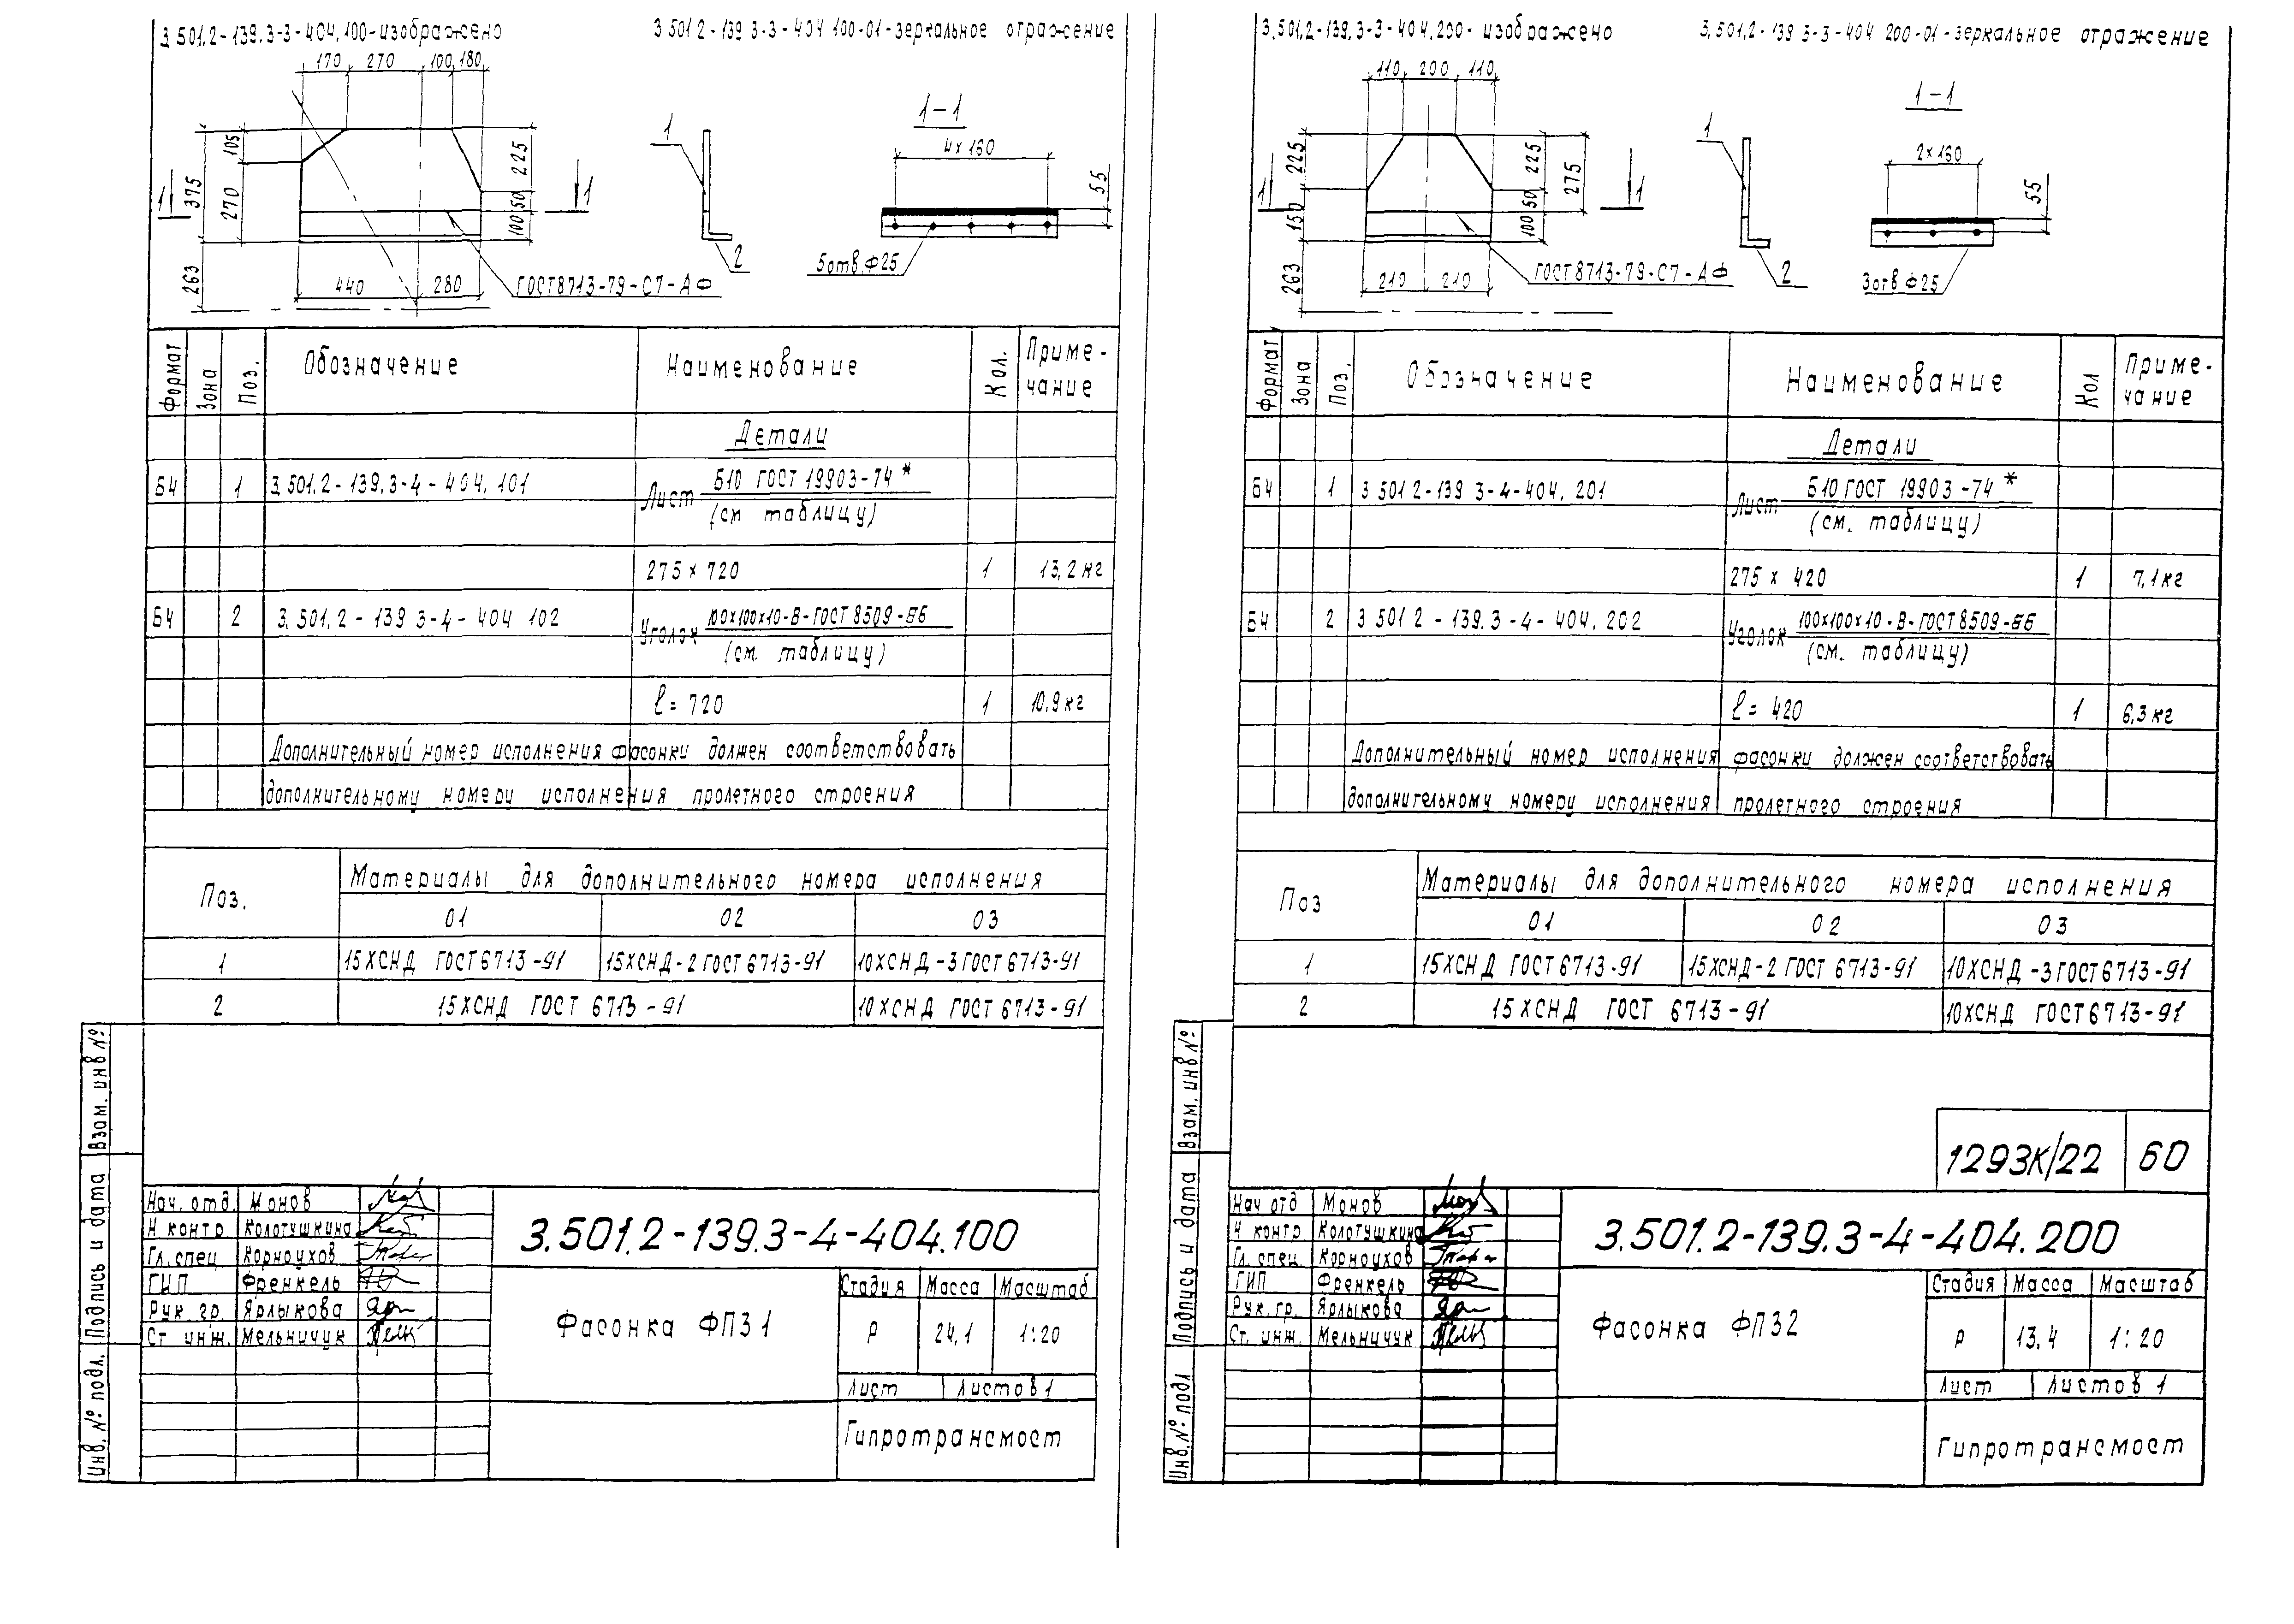 3.501.2-139.3-3-404.100-изображено
3 501 2-139 3-3-404 100-01-зеркальное отражение
170 270 100 180
105
375
270
263
225
50
100
1 1
440 280
ГОСТ8713-79-С7-АФ
1
2
1-1
4×160
55
5отв.Ф25
Формат Зона Поз. Обозначение Наименование Кол. Приме-
чание
Детали
Б4 1 3.501.2-139.3-4-404.101 Лист Б10 ГОСТ 19903-74*
(см таблицу)
275×720 1 13,2кг
Б4 2 3.501.2-139 3-4-404 102 Уголок 100×100×10-В-ГОСТ 8509-86
(см. таблицу)
ℓ=720 1 10,9кг
Дополнительный номер исполнения фасонки должен соответствовать
дополнительному номеру исполнения пролетного строения
Поз. Материалы для дополнительного номера исполнения
01 02 03
1 15ХСНД ГОСТ6713-91 15ХСНД-2 ГОСТ 6713-91 10ХСНД-3ГОСТ6713-91
2 15ХСНД ГОСТ 6713-91 10ХСНД ГОСТ6713-91
Взам. инв №
Подпись и дата
Инв. № подл.
Нач. отд. Монов
Н контр. Колотушкина
Гл. спец. Корноухов
ГИП Френкель
Рук. гр. Ярлыкова
Ст. инж. Мельничук
3.501.2-139.3-4-404.100
Фасонка ФП31
Стадия Масса Масштаб
Р 24,1 1:20
Лист Листов 1
Гипротрансмост
3.501.2-139.3-3-404.200-изображено
3.501.2-139 3-3-404 200-01-зеркальное отражение
110 200 110
225
150
263
225
50
100
275
1 1
210 210
ГОСТ8713-79-С7-АФ
1
2
1-1
2×160
55
3отв Ф25
Формат Зона Поз. Обозначение Наименование Кол Приме-
чание
Детали
Б4 1 3 501 2-139 3-4-404.201 Лист Б10 ГОСТ 19903-74*
(см. таблицу)
275×420 1 7,1кг
Б4 2 3 501 2-139.3-4-404.202 Уголок 100×100×10-В-ГОСТ8509-86
(см. таблицу)
ℓ=420 1 6,3кг
Дополнительный номер исполнения фасонки должен соответствовать
дополнительному номеру исполнения пролетного строения
Поз Материалы для дополнительного номера исполнения
01 02 03
1 15ХСНД ГОСТ6713-91 15ХСНД-2 ГОСТ 6713-91 10ХСНД-3ГОСТ6713-91
2 15ХСНД ГОСТ 6713-91 10ХСНД ГОСТ6713-91
1293К/22 60
Взам. инв №
Подпись и дата
Инв. № подл
Нач отд Монов
Н контр Колотушкина
Гл. спец. Корноухов
ГИП Френкель
Рук. гр. Ярлыкова
Ст. инж. Мельничук
3.501.2-139.3-4-404.200
Фасонка ФП32
Стадия Масса Масштаб
Р 13,4 1:20
Лист Листов 1
Гипротрансмост